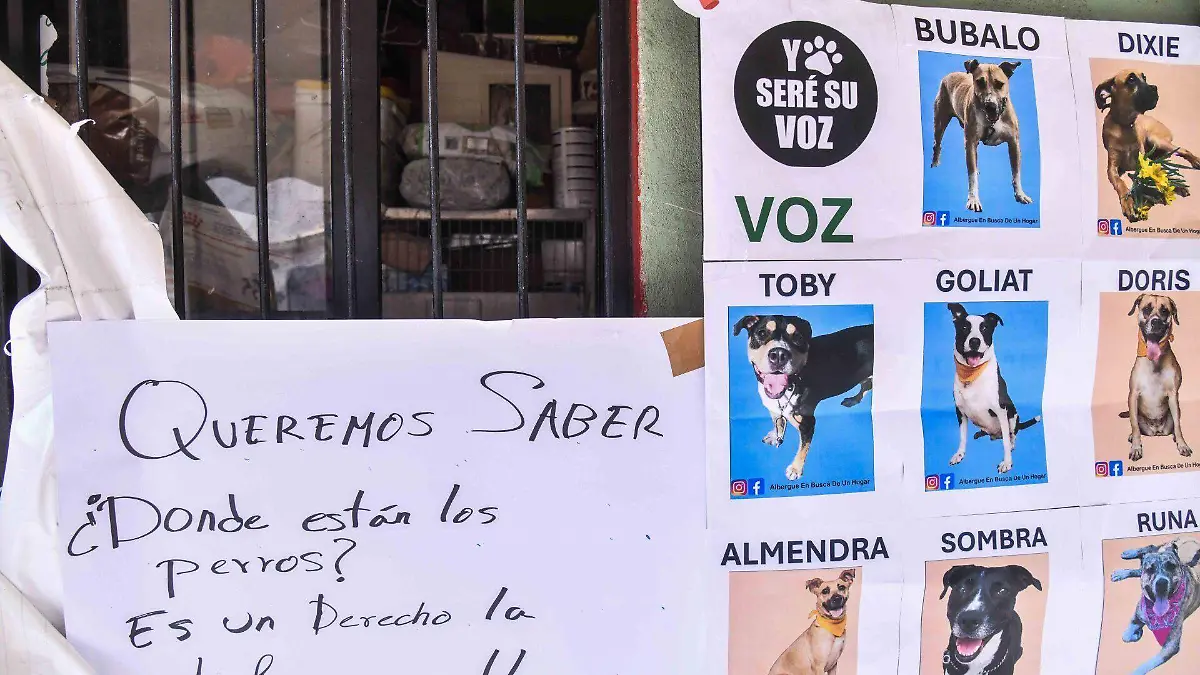 QUEREMOS SABER
¿Donde están los
perros?
Es un Derecho la
Y
SERÉ SU
VOZ
VOZ
BUBALO
Albergue En Busca De Un Hogar
DIXIE
Albergue En Busca De Un Hogar
TOBY
Albergue En Busca De Un Hogar
GOLIAT
Albergue En Busca De Un Hogar
DORIS
Albergue En Busca De Un Hogar
ALMENDRA
SOMBRA
RUNA